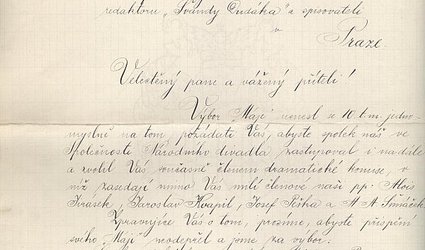 redaktoru „Švandy Dudáka“ a spisovateli
v
Praze
Velectěný pane a vážený příteli!
Výbor „Máje“ usnesl se 10. t.m. jedno-
myslně na tom, požádati Vás, abyste spolek náš ve
Společnosti Národního divadla zastupoval i nadále
a zvolil Vás současně členem dramatické komise, v
níž zasedají mimo Vás milí členové naši pp. Alois
Jirásek, Jaroslav Kvapil, Josef Ježka a M. A. Šimáček.
Zpravujíce Vás o tom, prosíme, abyste přispění
svého „Máji“ neodepřel a jsme za výbor: